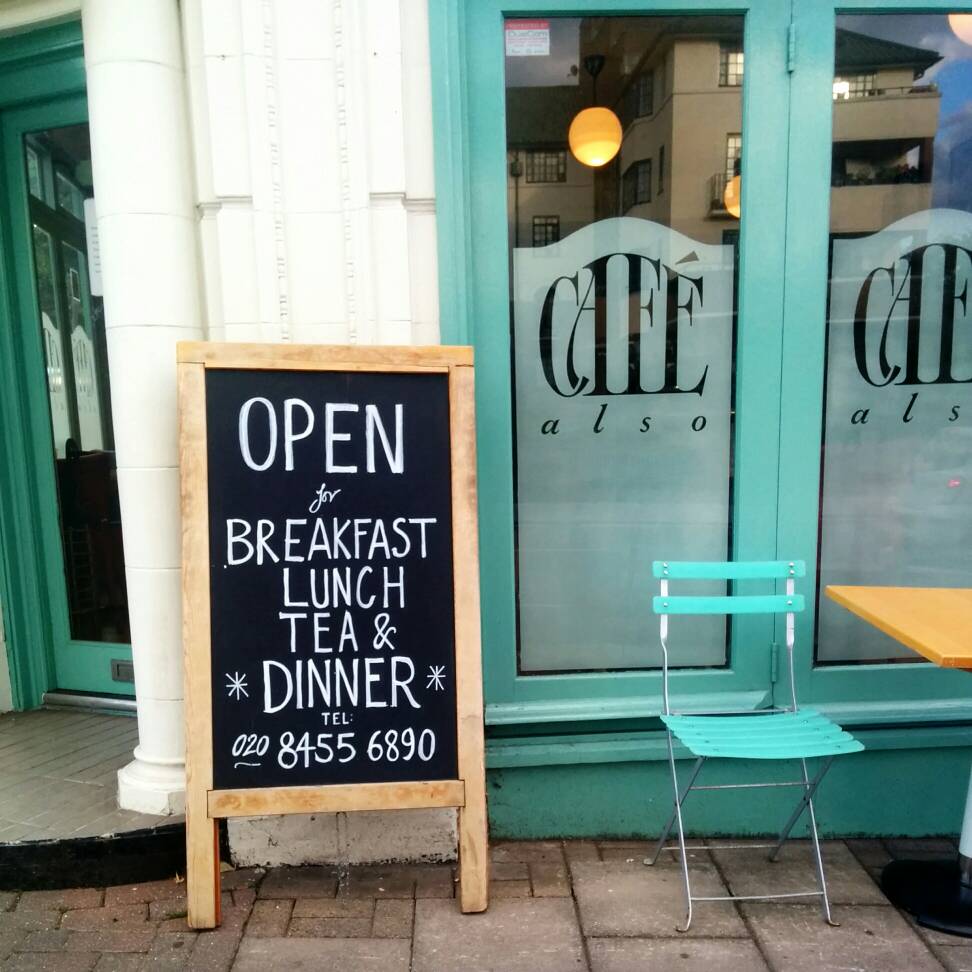 OPEN
for
BREAKFAST
LUNCH
TEA &
* DINNER *
TEL:
020 8455 6890
CAFÉ
also
CAFÉ
als